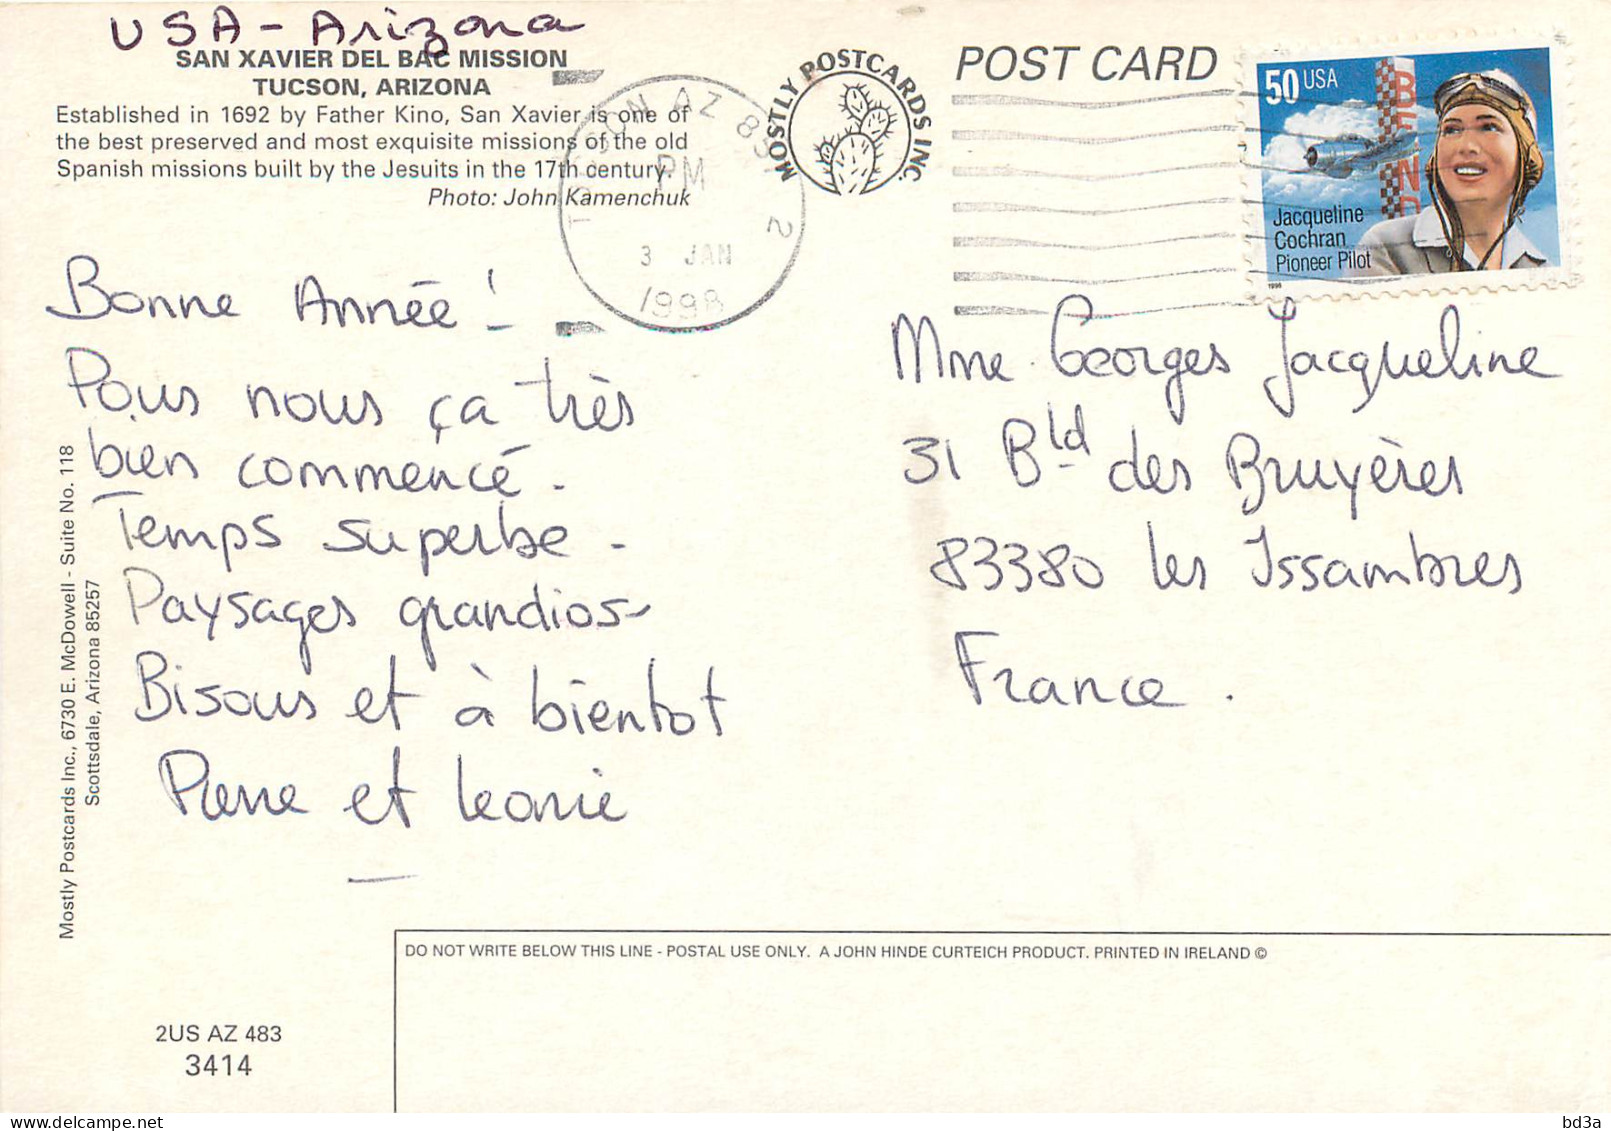 USA - Arizona
SAN XAVIER DEL BAC MISSION
TUCSON, ARIZONA
Established in 1692 by Father Kino, San Xavier is one of
the best preserved and most exquisite missions of the old
Spanish missions built by the Jesuits in the 17th century.
Photo: John Kamenchuk
TUCSON AZ 857 2
PM
3 JAN
1998
MOSTLY POSTCARDS INC.
POST CARD
50 USA
BEND
Jacqueline
Cochran
Pioneer Pilot
1996
Bonne Année !
Pour nous ça très
bien commencé.
Temps superbe -
Paysages grandios
Bisous et à bientot
Pierre et Leonie
Mme Georges Jacqueline
31 Bld des Bruyères
83380 les Issambres
France.
Mostly Postcards Inc., 6730 E. McDowell - Suite No. 118
Scottsdale, Arizona 85257
DO NOT WRITE BELOW THIS LINE - POSTAL USE ONLY. A JOHN HINDE CURTEICH PRODUCT. PRINTED IN IRELAND ©
2US AZ 483
3414
bd3a